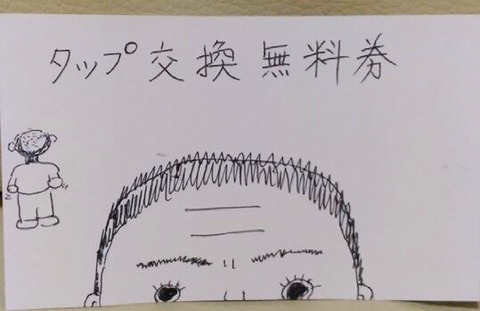 タップ交換無料券